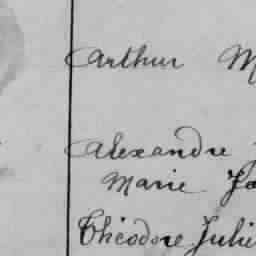 Arthur M
Alexandre J
Marie Jo
Théodore Julie